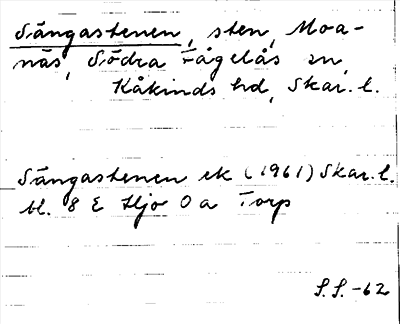 Sängastenen, sten, Moa-
näs, Södra Fågelås sn,
Kåkinds hd, Skar. l.
Sängastenen ek (1961) Skar. l.
bl. 8 E Hjo 0 a Torp
S.S.-62